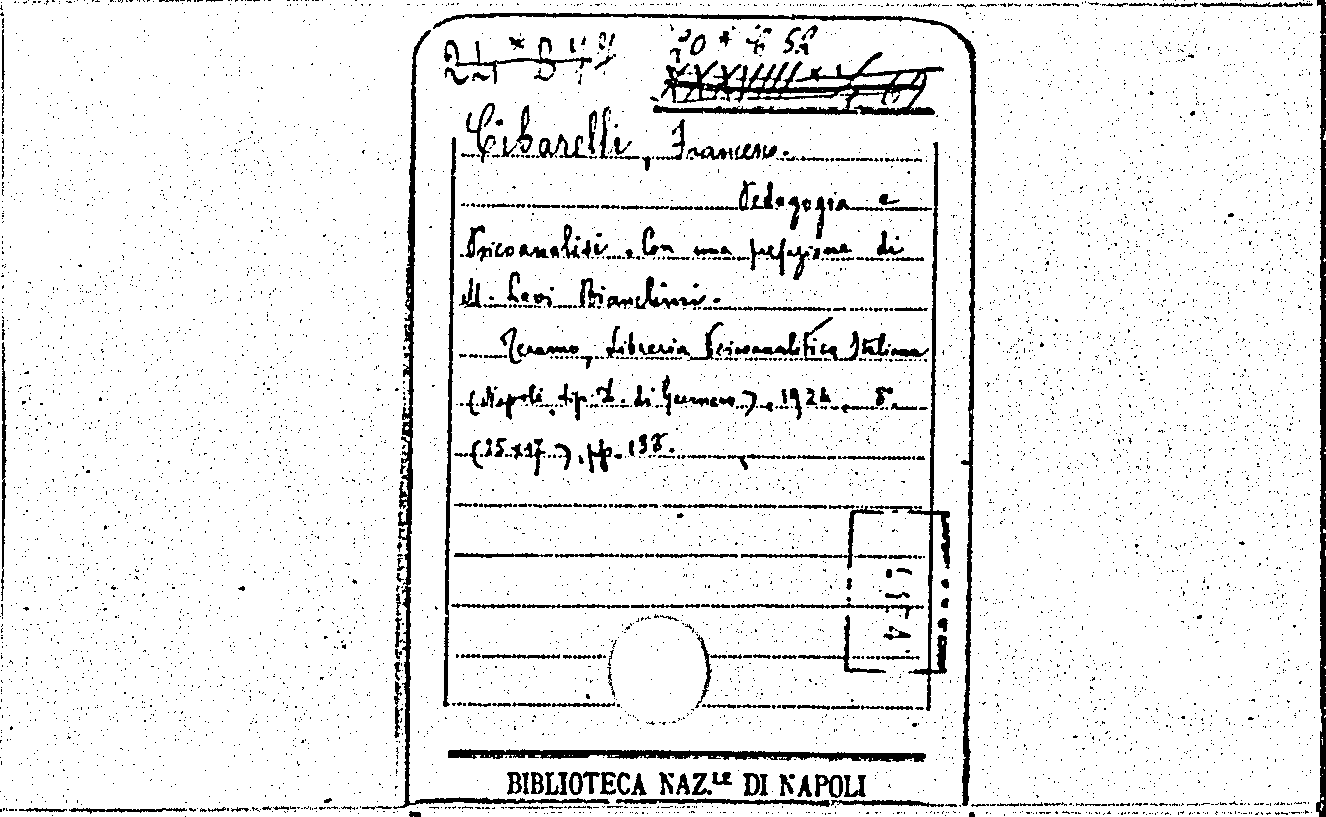 20 * C 52
Cibarelli, Francesco.
Pedagogia e
Psicoanalisi. Con una prefazione di
M. Levi Bianchini.
Teramo, Libreria Psicoanalitica Italiana
(Napoli, tip. di Gennaro), 1924. 8°
(25x17), pp. 138.
BIBLIOTECA NAZ.LE DI NAPOLI